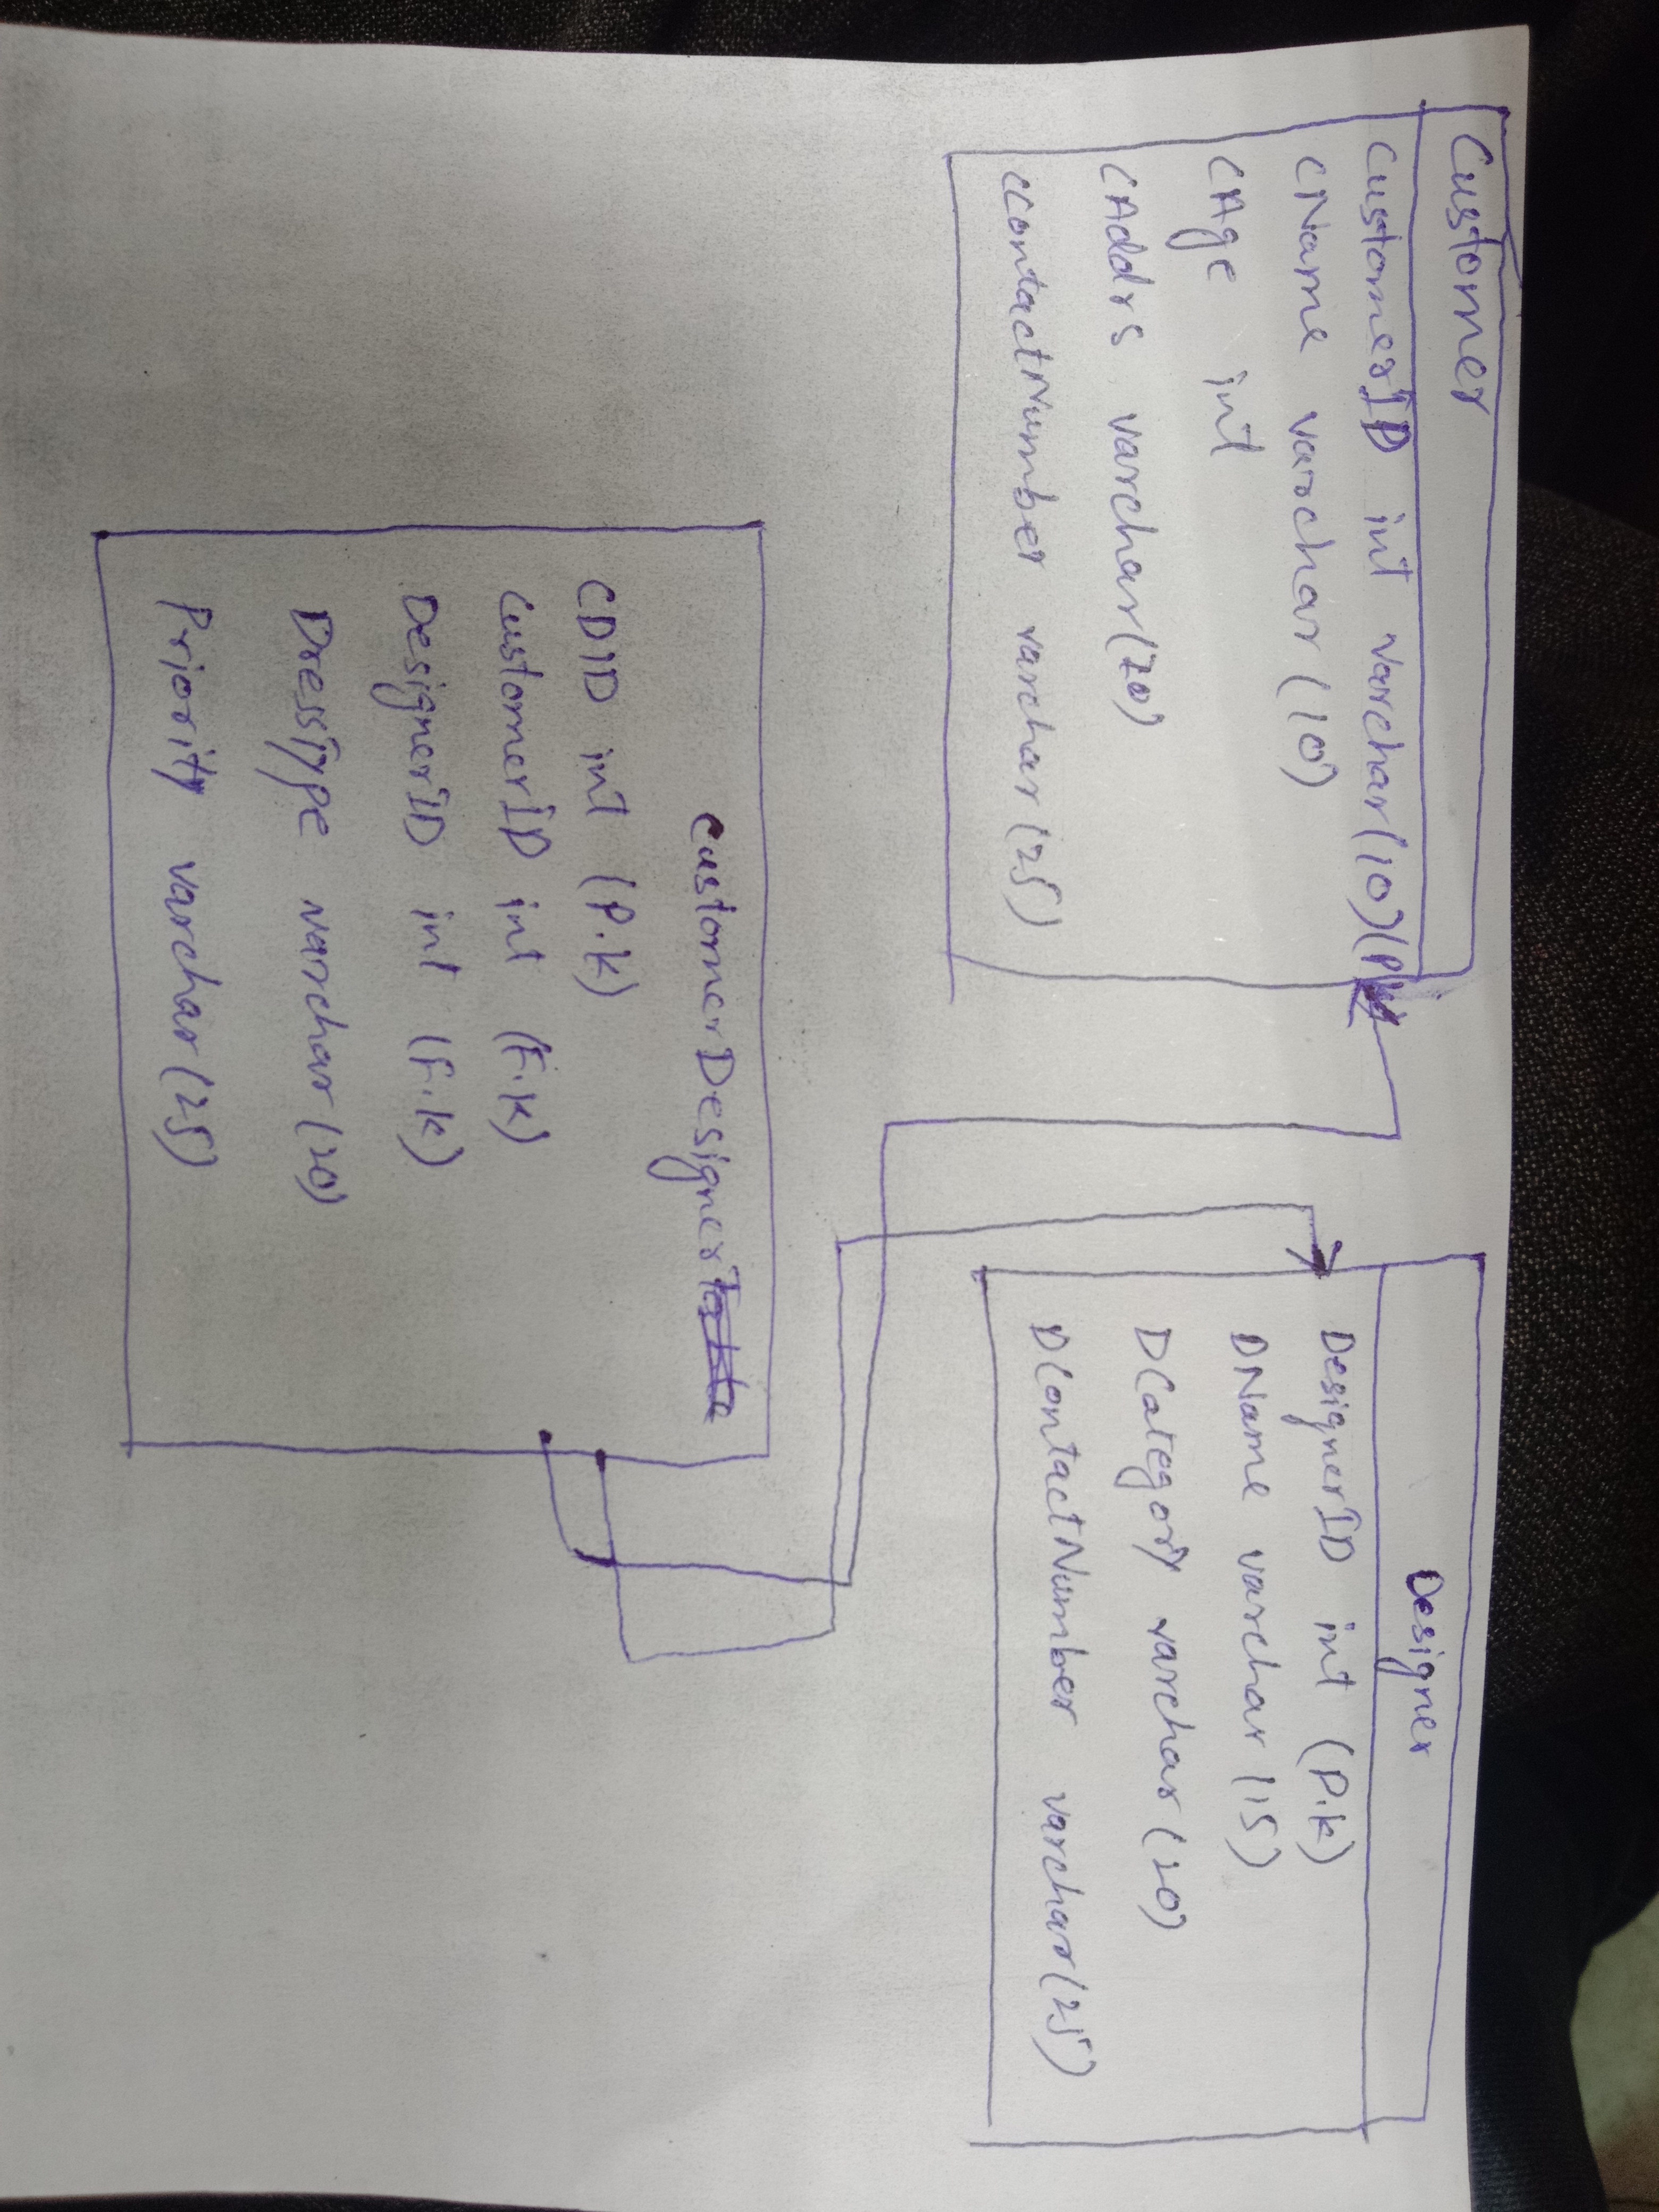 Customer
CustomerID int varchar(10)(PK)
CName varchar(10)
CAge int
CAddrs varchar(20)
CContactNumber varchar(25)
Designer
DesignerID int (P.K)
DName varchar(15)
DCategory varchar(20)
DContactNumber varchar(25)
CustomerDesigner
CDID int (P.K)
CustomerID int (F.K)
DesignerID int (F.K)
DressType varchar(20)
Priority varchar(25)